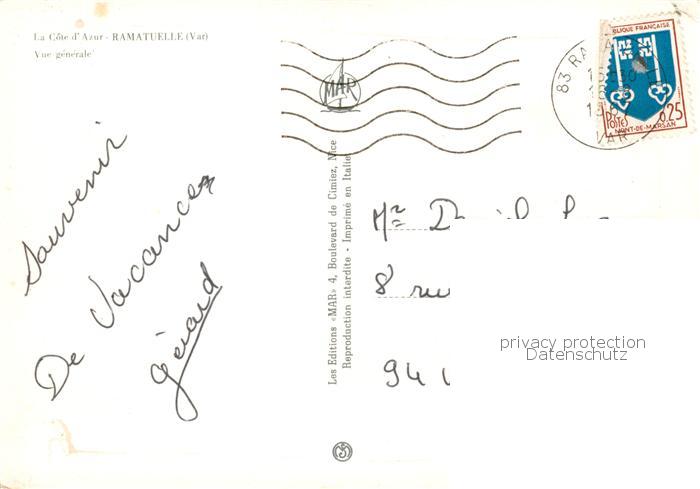 La Côte d'Azur - RAMATUELLE (Var)
Vue générale
MAR
RÉPUBLIQUE FRANÇAISE
0,25
POSTES
MONT-DE-MARSAN
83 RA
VAR
Souvenir
De Vacances
Gérard
Les Editions «MAR» 4, Boulevard de Cimiez, Nice
Reproduction interdite - Imprimé en Italie
Mr
8 rue
94
privacy protection
Datenschutz